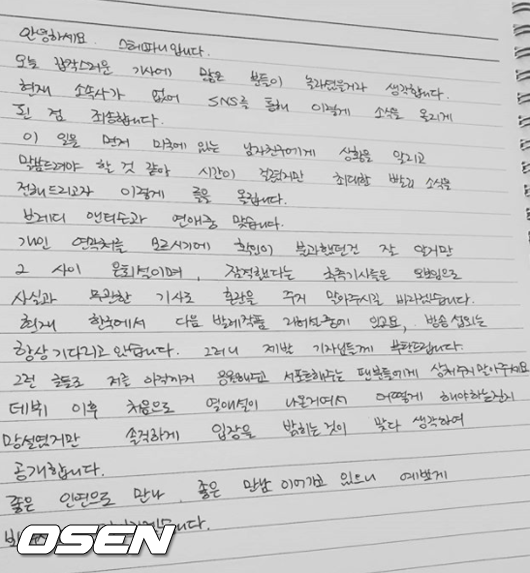 안녕하세요. 스테파니입니다.
오늘 갑작스러운 기사에 많은 분들이 놀라셨을거라 생각합니다.
현재 소속사가 없어 SNS를 통해 이렇게 소식을 올리게
된 점 죄송합니다.
이 일을 먼저 미국에 있는 남자친구에게 상황을 알리고
말씀드려야 할 것 같아 시간이 걸렸지만 최대한 빨리 소식을
전해드리고자 이렇게 글을 올립니다.
브래디 앤더슨과 연애중 맞습니다.
개인 연락처를 모르시기에 확인이 불가했던건 잘 알지만
그 사이 은퇴설이며, 잠적했다는 추측기사들은
사실과 무관한 기사로 혼란을 주지 말아주시길 바라겠습니다.
현재 한국에서 다음 발레작품 리허설중에 있고요, 방송 섭외는
항상 기다리고 있습니다. 그러니 제발 기자님들께 부탁드립니다.
그런 글들로 저를 아직까지 응원해주고 서포트해주는 팬분들에게 상처주지말아주세요
데뷔 이후 처음으로 열애설이 나온거여서 어떻게 해야하는건지
망설였지만 솔직하게 입장을 밝히는것이 맞다 생각하여
공개합니다.
좋은 인연으로 만나, 좋은 만남 이어가고 있으니 예쁘게
OSEN